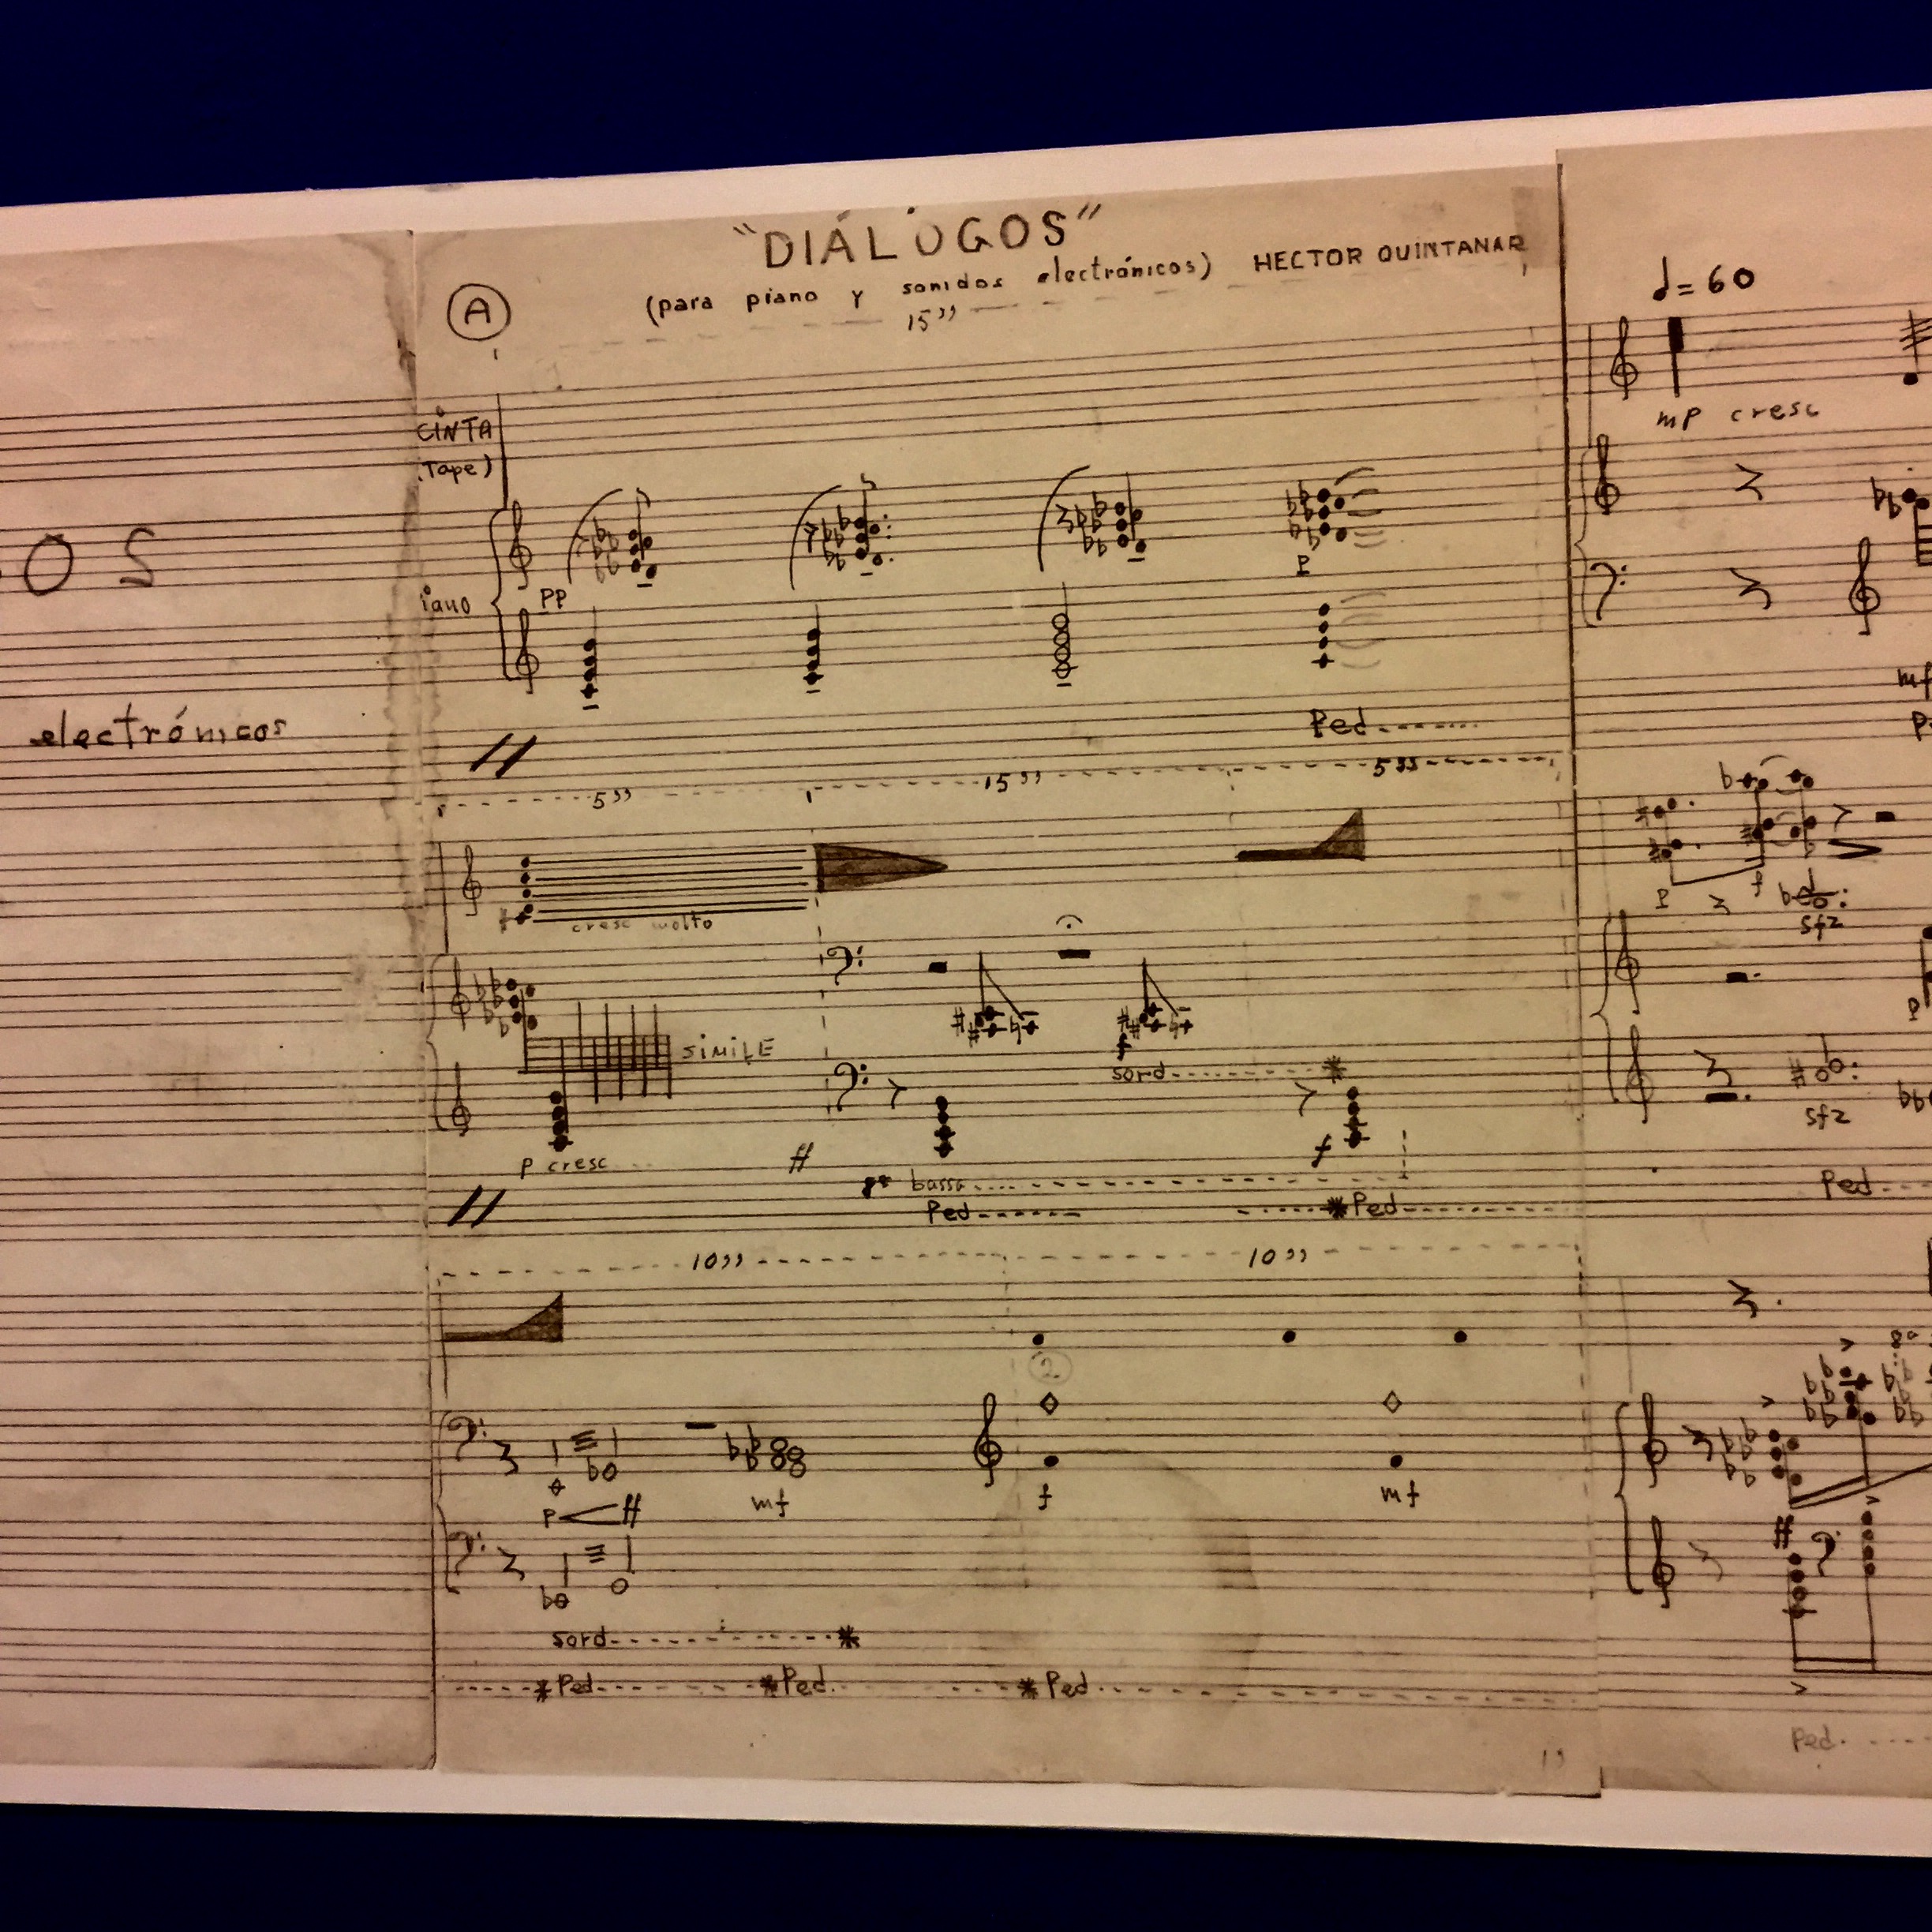 OS
electrónicos
"DIÁLOGOS"
(para piano y sonidos electrónicos) HECTOR QUINTANAR
A
15"
CINTA
(Tape)
iano
PP
P
Ped
5" 15" 5"
cresc molto
SIMILE
f
sord
P cresc
ff
f
8ª bassa
Ped
Ped
10" 10"
2
P ff
mf
f
mf
sord
Ped Ped Ped
= 60
mP cresc
mf
P f
sfz
P
sfz
Ped
8ª
Ped.